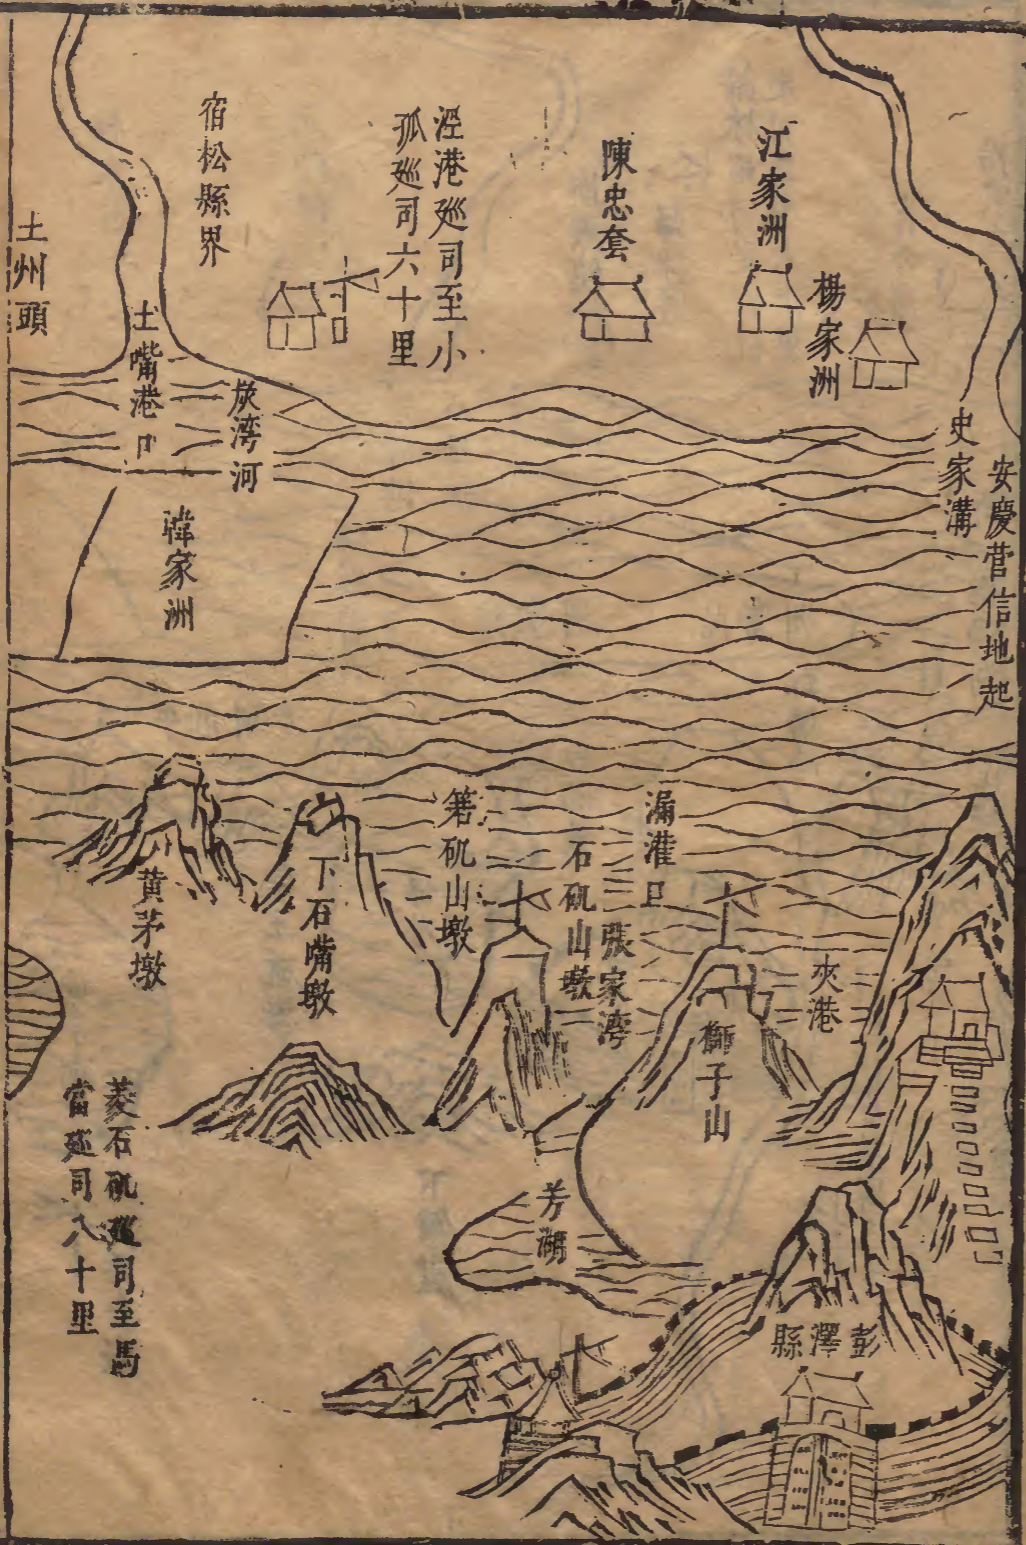 安慶营信地起
史家溝
楊家洲
江家洲
陳忠套
涇港廵司至小
孤廵司六十里
宿松縣界
土州頭
土嘴港口
灰湾河
韓家洲
夾港
獅子山
漏灌
張家湾
石矶山墩
矶山墩
下石嘴墩
黄茅墩
芳湖
彭澤縣
菱石矶廵司至馬
當廵司八十里